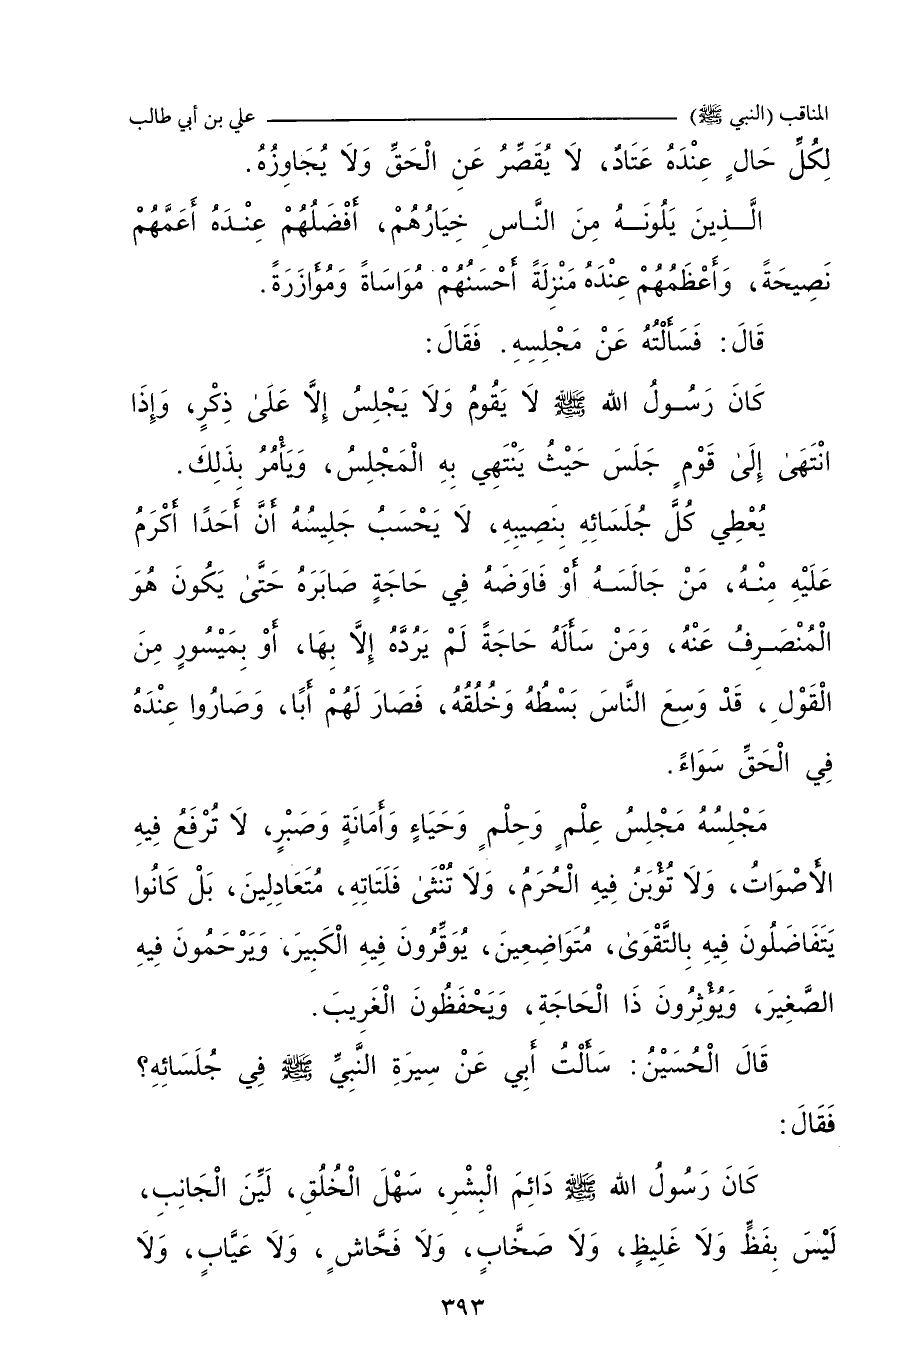 المناقب (النبي ﷺ) علي بن أبي طالب
لِكُلِّ حَالٍ عِنْدَهُ عَتَادٌ، لَا يُقَصِّرُ عَنِ الْحَقِّ وَلَا يُجَاوِزُهُ.
الَّـذِينَ يَلُونَـهُ مِنَ النَّـاسِ خِيَارُهُمْ، أَفْضَلُهُمْ عِنْـدَهُ أَعَمَّهُمْ
نَصِيحَةً، وَأَعْظَمُهُمْ عِنْدَهُ مَنْزِلَةً أَحْسَنُهُمْ مُوَاسَاةً وَمُؤَازَرَةً.
قَالَ: فَسَأَلْتُهُ عَنْ مَجْلِسِهِ. فَقَالَ:
كَانَ رَسُـولُ الله ﷺ لَا يَقُومُ وَلَا يَجْلِسُ إِلَّا عَلَىٰ ذِكْرٍ، وَإِذَا
انْتَهَىٰ إِلَىٰ قَوْمٍ جَلَسَ حَيْثُ يَنْتَهِي بِهِ الْمَجْلِسُ، وَيَأْمُرُ بِذَلِكَ.
يُعْطِي كُلَّ جُلَسَائِهِ بِنَصِيبِهِ، لَا يَحْسَبُ جَلِيسُهُ أَنَّ أَحَدًا أَكْرَمُ
عَلَيْهِ مِنْـهُ، مَنْ جَالَسَـهُ أَوْ فَاوَضَهُ فِي حَاجَةٍ صَابَرَهُ حَتَّىٰ يَكُونَ هُوَ
الْمُنْصَـرِفُ عَنْهُ، وَمَنْ سَأَلَهُ حَاجَةً لَمْ يَرُدَّهُ إِلَّا بِهَا، أَوْ بِمَيْسُورٍ مِنَ
الْقَوْلِ، قَدْ وَسِعَ النَّاسَ بَسْطُهُ وَخُلُقُهُ، فَصَارَ لَهُمْ أَبًا، وَصَارُوا عِنْدَهُ
فِي الْحَقِّ سَوَاءً.
مَجْلِسُهُ مَجْلِسُ عِلْمٍ وَحِلْمٍ وَحَيَاءٍ وَأَمَانَةٍ وَصَبْرٍ، لَا تُرْفَعُ فِيهِ
الْأَصْوَاتُ، وَلَا تُؤْبَنُ فِيهِ الْحُرَمُ، وَلَا تُنْثَىٰ فَلَتَاتِهِ، مُتَعَادِلِينَ، بَلْ كَانُوا
يَتَفَاضَلُونَ فِيهِ بِالتَّقْوَىٰ، مُتَوَاضِعِينَ، يُوَقِّرُونَ فِيهِ الْكَبِيرَ، وَيَرْحَمُونَ فِيهِ
الصَّغِيرَ، وَيُؤْثِرُونَ ذَا الْحَاجَةِ، وَيَحْفَظُونَ الْغَرِيبَ.
قَالَ الْحُسَيْنُ: سَأَلْتُ أَبِي عَنْ سِيرَةِ النَّبِيِّ ﷺ فِي جُلَسَائِهِ؟
فَقَالَ:
كَانَ رَسُولُ الله ﷺ دَائِمَ الْبِشْرِ، سَهْلَ الْخُلُقِ، لَيِّنَ الْجَانِبِ،
لَيْسَ بِفَظٍّ وَلَا غَلِيظٍ، وَلَا صَخَّابٍ، وَلَا فَحَّاشٍ، وَلَا عَيَّابٍ، وَلَا
٣٩٣